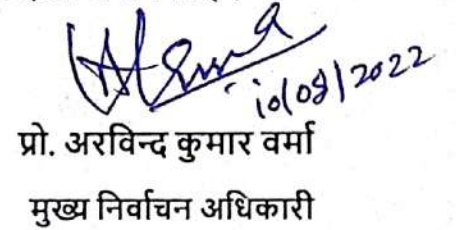 10/08/2022
प्रो. अरविन्द कुमार वर्मा
मुख्य निर्वाचन अधिकारी